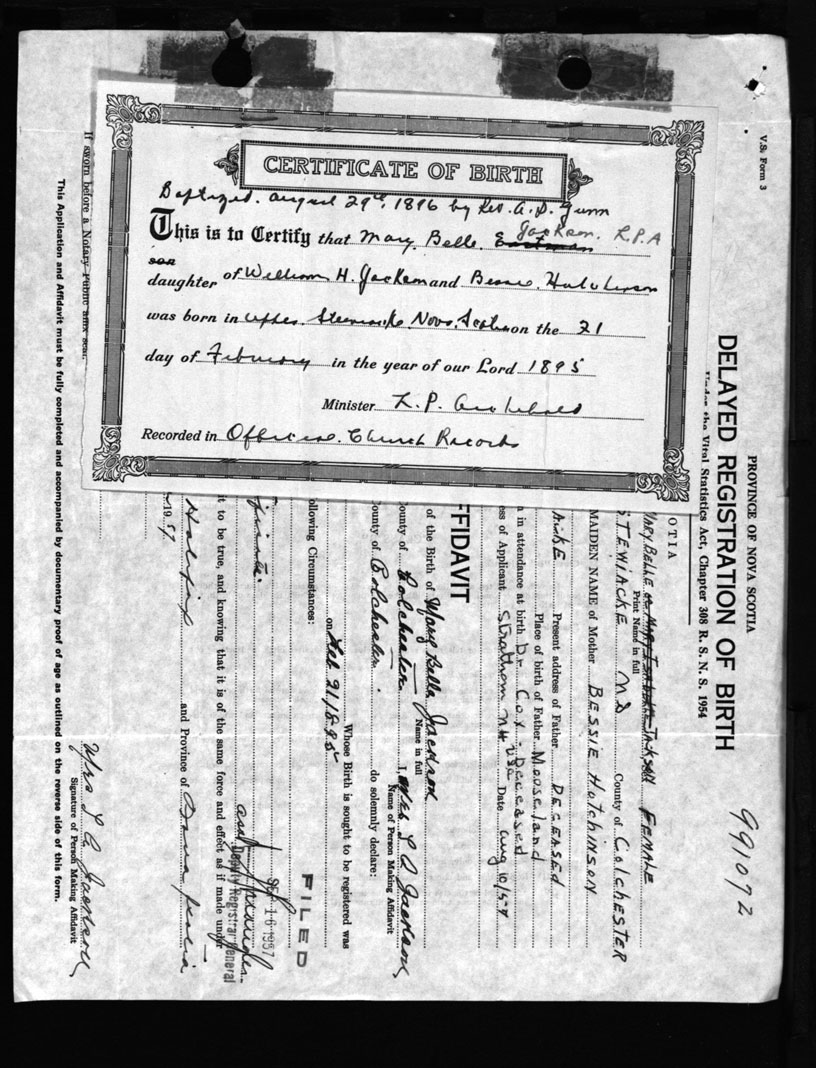 CERTIFICATE OF BIRTH
Baptized. August 29th, 1896 by Rev. A. D. Gunn
This is to Certify that Mary Belle Eastman Jackson. L.P.A
son
daughter of William H. Jackson and Bessie Hutchinson
was born in Upper Stewiacke Nova Scotia on the 21
day of February in the year of our Lord 1895
Minister L. P. Archibald
Recorded in Official Church Records
V.S. Form 3
PROVINCE OF NOVA SCOTIA
DELAYED REGISTRATION OF BIRTH
Under the Vital Statistics Act, Chapter 308 R. S. N. S. 1954
991092
OTIA
MARY BELLE JACKSON FEMALE
Print Name in full
STEWIACKE NS County of COLCHESTER
MAIDEN NAME of Mother BESSIE HUTCHINSON
Present address of Father DECEASED
Place of birth of Father Mooseland
in attendance at birth Dr. Cox - Deceased
ss of Applicant Stratham N.H. USA Date Aug 10/57
FFIDAVIT
of the Birth of Mary Belle Jackson
Name in full
ounty of Colchester I, Mrs L A Jackson
Name of Person Making Affidavit
ounty of Colchester do solemnly declare:
Whose Birth is sought to be registered was
on Feb 21/1895
ollowing Circumstances:
FILED
SEP 16 1957
Deputy Registrar General
t to be true, and knowing that it is of the same force and effect as if made under
Halifax and Province of Nova Scotia
19 57
Mrs L A Jackson
Signature of Person Making Affidavit
If sworn before a Notary Public affix seal.
This Application and Affidavit must be fully completed and accompanied by documentary proof of age as outlined on the reverse side of this form.